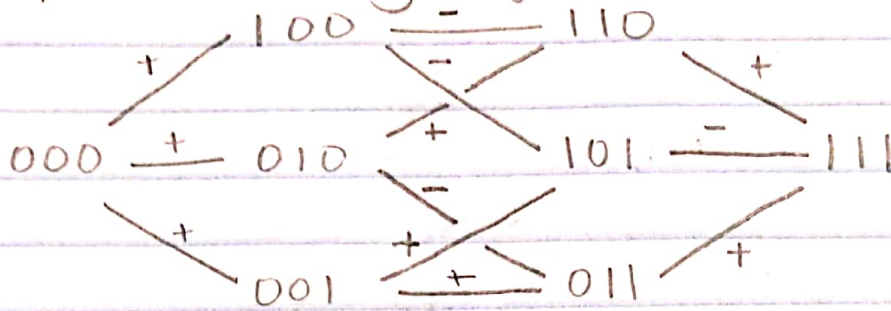 100 - 110
+ - +
000 + 010 + 101 - 111
-
+ + +
001 011